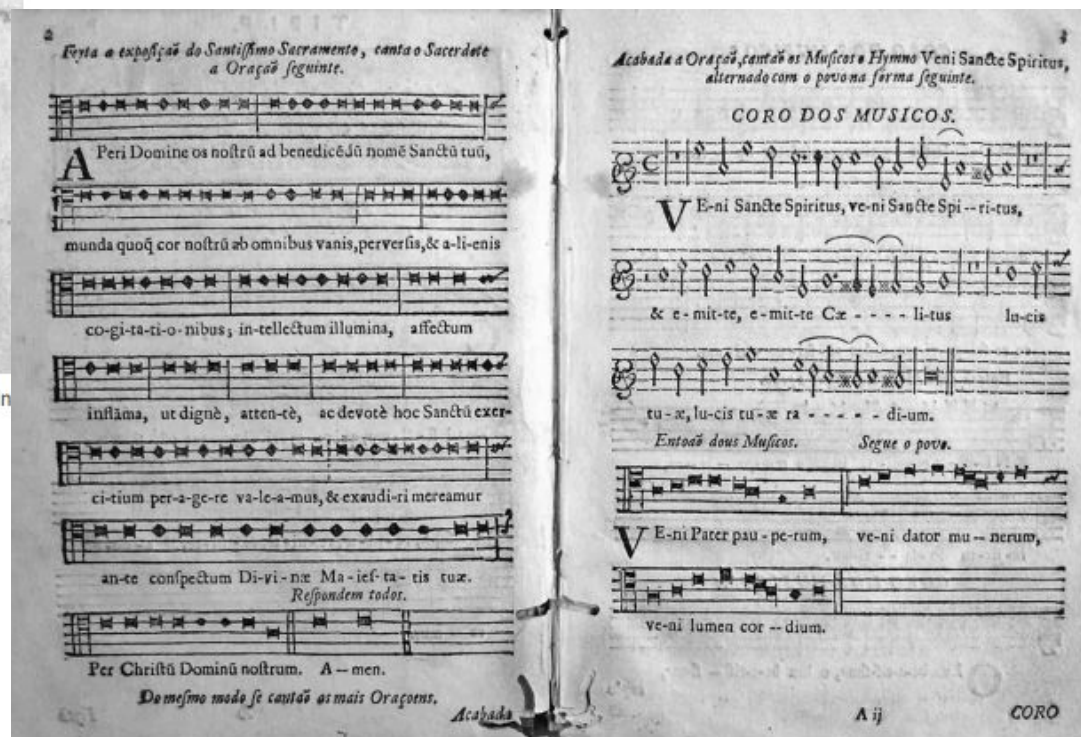 2
Feyta a exposiçaõ do Santissimo Sacramento, canta o Sacerdote
a Oraçaõ seguinte.
APeri Domine os nostrũ ad benedicẽdũ nomẽ Sanctũ tuũ,
munda quoq̃ cor nostrũ ab omnibus vanis, perversis, & a-li-enis
co-gi-ta-ti-o-nibus; in-tellectum illumina, affectum
inflãma, ut dignè, atten-tè, ac devotè hoc Sanctũ exer-
ci-tium per-a-ge-re va-le-a-mus, & exaudi-ri mereamur
an-te conspectum Di-vi-næ Ma-ies-ta-tis tuæ.
Respondem todos.
Per Christũ Dominũ nostrum. A--men.
Do mesmo modo se cantaõ as mais Oraçoens.
Acabada
3
Acabada a Oraçaõ, cantaõ os Musicos o Hymno Veni Sancte Spiritus,
alternado com o povo na forma seguinte.
CORO DOS MUSICOS.
VE-ni Sancte Spiritus, ve-ni Sancte Spi--ri-tus,
& e-mit-te, e-mit-te Cæ - - - - li-tus lu-cis
tu-æ, lu-cis tu-æ ra - - - - - di-um.
Entoaõ dous Musicos. Segue o povo.
VE-ni Pater pau-pe-rum, ve-ni dator mu--nerum,
ve-ni lumen cor--dium.
A ij CORO